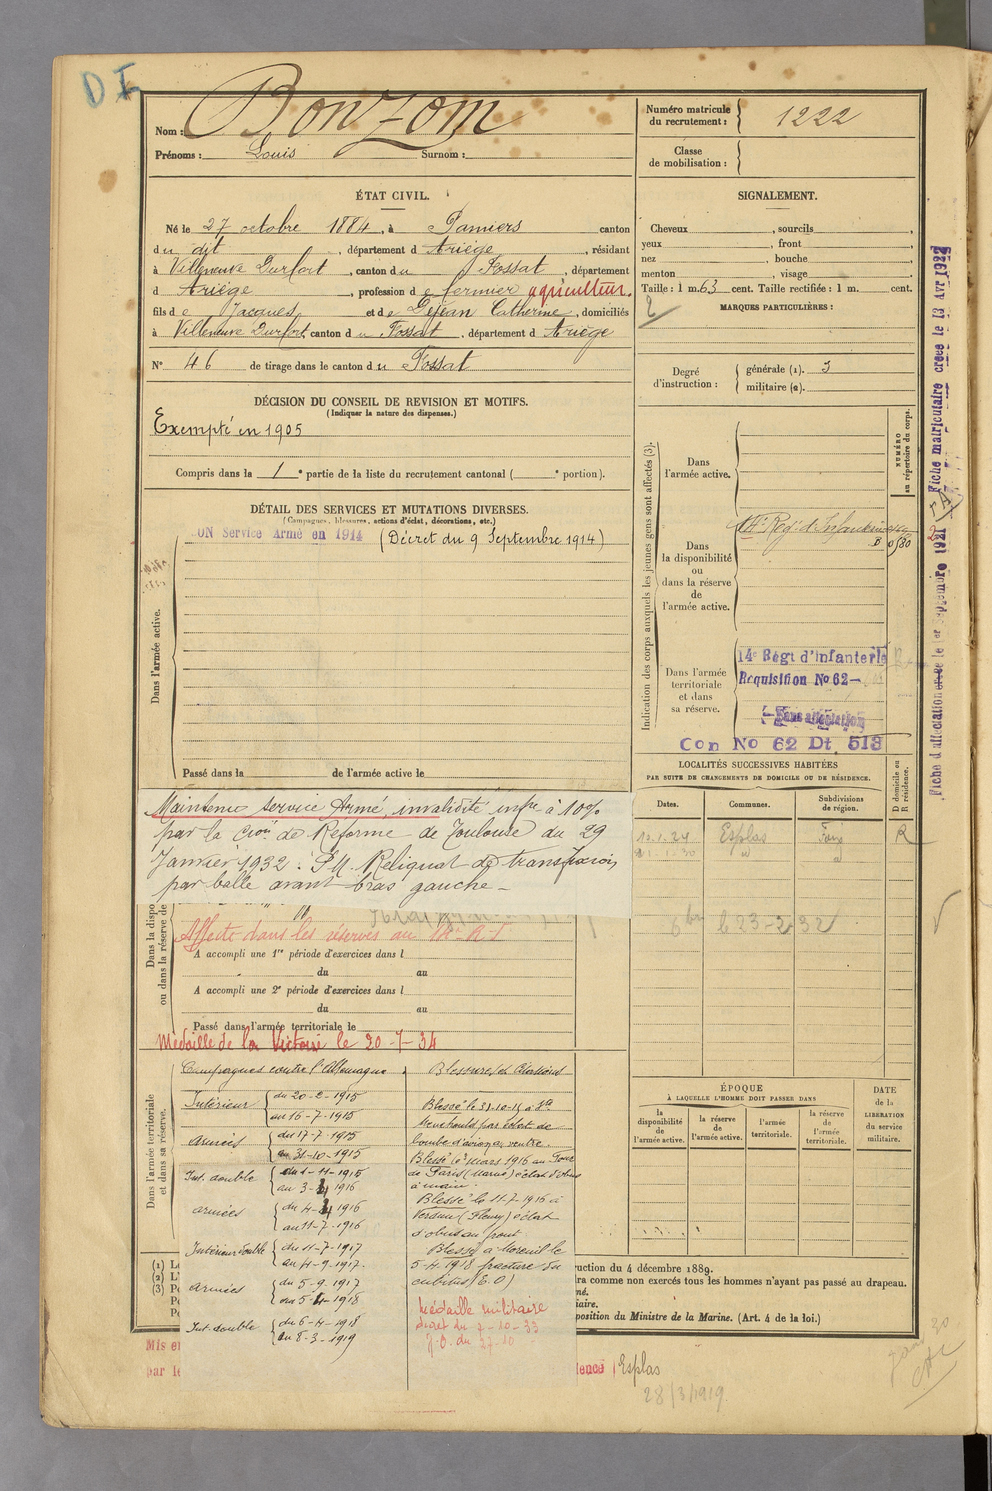 D I
Nom : Bonzom
Prénoms : Louis Surnom :
Numéro matricule du recrutement : 1222
Classe de mobilisation :
ÉTAT CIVIL.
Né le 27 octobre 1884, à Pamiers canton
du dit, département d Ariège, résidant
à Villeneuve Durfort, canton du Fossat, département
d Ariège, profession de fermier agriculteur.
fils de Jacques et de Dejean Catherine, domiciliés
à Villeneuve Durfort, canton du Fossat, département d Ariège
N° 46 de tirage dans le canton du Fossat
SIGNALEMENT.
Cheveux , sourcils ,
yeux , front ,
nez , bouche ,
menton , visage
Taille : 1 m. 63 cent. Taille rectifiée : 1 m. cent.
MARQUES PARTICULIÈRES :
2
Degré d'instruction : générale (1). 3
militaire (2).
DÉCISION DU CONSEIL DE REVISION ET MOTIFS.
(Indiquer la nature des dispenses.)
Exempté en 1905
Compris dans la 1 e partie de la liste du recrutement cantonal ( e portion).
DÉTAIL DES SERVICES ET MUTATIONS DIVERSES.
(Campagnes, blessures, actions d'éclat, décorations, etc.)
ON Service Armé en 1914 (Décret du 9 Septembre 1914)
Dans l'armée active.
Passé dans la de l'armée active le
Indication des corps auxquels les jeunes gens sont affectés (3).
NUMÉRO au répertoire du corps.
Dans l'armée active.
Dans la disponibilité ou dans la réserve de l'armée active.
Reg. d'Infanterie
Dans l'armée territoriale et dans sa réserve.
14e Régt d'Infanterie
Requisition No 62
Sans affectation
Con No 62 Dt 513
Fiche matriculaire créée le 13 Avr 1922
Fiche d'affectation créée le 1er Septembre 1921
Maintenu service Armé, invalidité infre à 10%
par la Cion de Réforme de Toulouse du 29
Janvier 1932. P.M. Reliquat de transfixion
par balle avant bras gauche -
Dans la dispo
ou dans la réserve de
Affecté dans les réserves au
A accompli une 1re période d'exercices dans l
du au
A accompli une 2e période d'exercices dans l
du au
Passé dans l'armée territoriale le
Médaille de la Victoire le 20-7-34
Dans l'armée territoriale et dans sa réserve.
Campagnes contre l'Allemagne
Intérieur du 20-2-1915
au 16-7-1915
armées du 17-7-1915
au 31-10-1915
Int. double du 1-11-1915
au 3-4 1916
armées du 4-4 1916
au 11-7-1916
Intérieur double du 11-7-1917
au 4-9-1917
armées du 5-9-1917
au 5-4-1918
Int double du 6-4-1918
au 8-3-1919
Blessures et Citations
Blessé le 31-10-15 à Ste
Menehould par éclat de
bombe d'avion au ventre.
Blessé le 3 mars 1916 au Four
de Paris (Marne) éclat d'obus
à main
Blessé le 11-7-1916 à
Verdun (Fleury) éclat
d'obus au front
Blessé à Moreuil le
5-4-1918 fracture du
cubitus (E.O)
Médaille militaire
décret du 7-10-33
J.O. du 27-10
LOCALITÉS SUCCESSIVES HABITÉES
PAR SUITE DE CHANGEMENTS DE DOMICILE OU DE RÉSIDENCE.
D domicile ou R résidence.
Dates. Communes. Subdivisions de région.
Esplas Foix R
le 23-2-32
ÉPOQUE
À LAQUELLE L'HOMME DOIT PASSER DANS
la disponibilité de l'armée active.
la réserve de l'armée active.
l'armée territoriale.
la réserve de l'armée territoriale.
DATE de la LIBÉRATION du service militaire.
(1) Le
(2) L'
(3) Po
Po
Po
ruction du 4 décembre 1889.
ra comme non exercés tous les hommes n'ayant pas passé au drapeau.
né.
iaire.
position du Ministre de la Marine. (Art. 4 de la loi.)
Mis en
par le
dence Esplas
28/3/1919